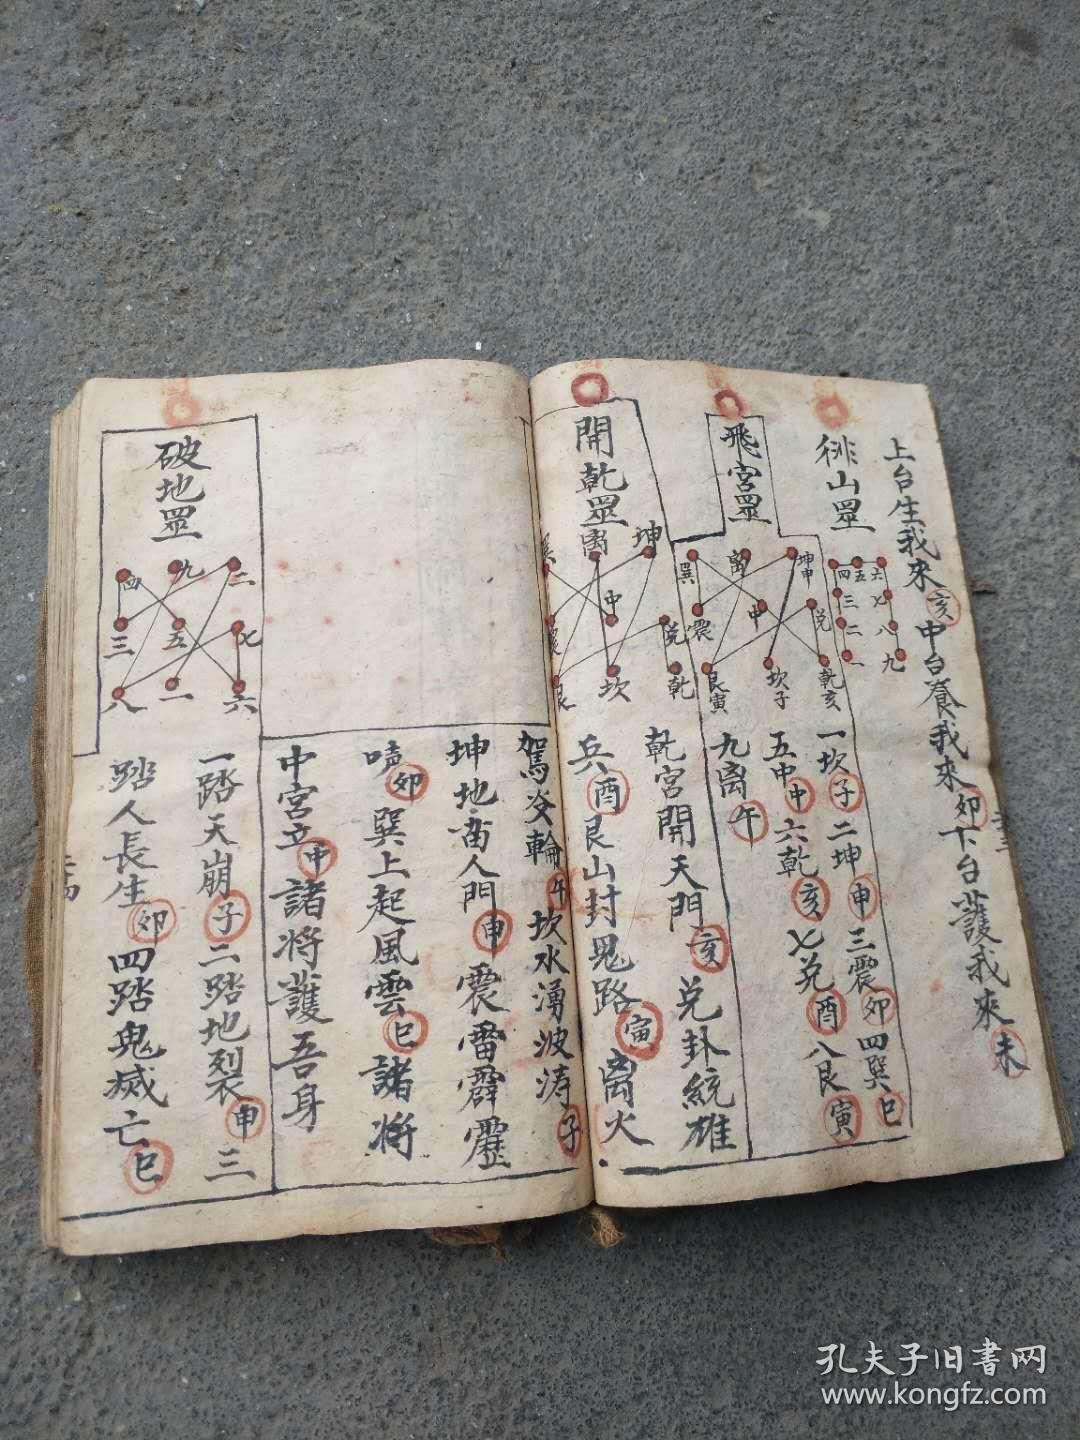 上台生我來亥中台養我來卯下台護我來未
徘山罡
四五六
三七
二八
一九
一坎子二坤申三震卯四巽巳
五中中六乾亥七兑酉八艮寅
九离午
飛宮罡
巽离坤申
震中兑
艮寅坎子乾亥
開乾罡
离坤
震中兑
艮坎乾
乾宮開天門亥兑卦統雄
兵酉艮山封鬼路寅离火
駕炎輪午坎水湧波涛子
坤地畄人門申震雷霹靂
嗊卯巽上起風雲巳諸将
中宮立中諸将護吾身
破地罡
四九二
三五七
八一六
一踏天崩子二踏地裂申三
踏人長生卯四踏鬼滅亡巳
孔夫子旧書网
www.kongfz.com